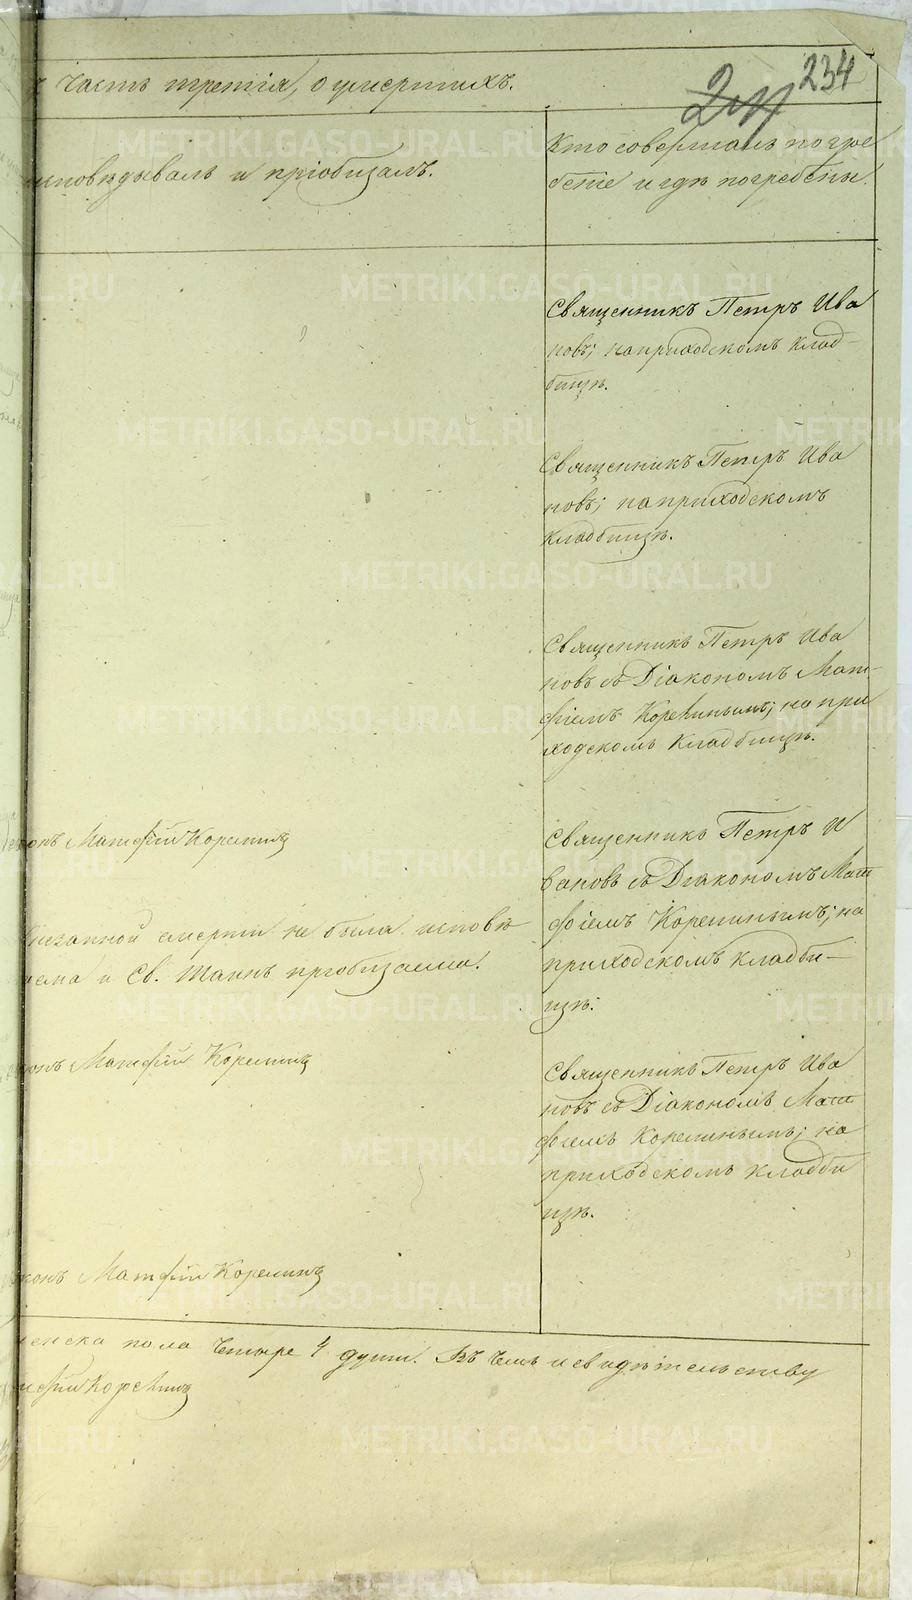 234
Часть третія, о умершихъ.
исповѣдывалъ и пріобщалъ.
Кто совершалъ погре
беніе и гдѣ погребены.
Священникъ Петръ Ива
новъ; на приходскомъ клад-
бищѣ.
Священникъ Петръ Ива
новъ; на приходскомъ
кладбищѣ.
Священникъ Петръ Ива
новъ съ Діакономъ Мат-
фіемъ Корелинымъ; на при
ходскомъ кладбищѣ.
конъ Матфій Корелинъ
Священникъ Петръ И
вановъ съ Діакономъ Мат
фіемъ Корелинымъ; на
приходскомъ кладби-
щѣ.
внезапной смерти не была исповѣ
ема и Св. Таинъ пріобщаема.
конъ Матфій Корелинъ
Священникъ Петръ Ива
новъ съ Діакономъ Мат
фіемъ Корелинымъ; на
приходскомъ кладби
щѣ.
конъ Матфій Корелинъ
женска пола четыре 4 души. Въ чемъ и свидѣтельству
тфій Корелинъ
METRIKI.GASO-URAL.RU